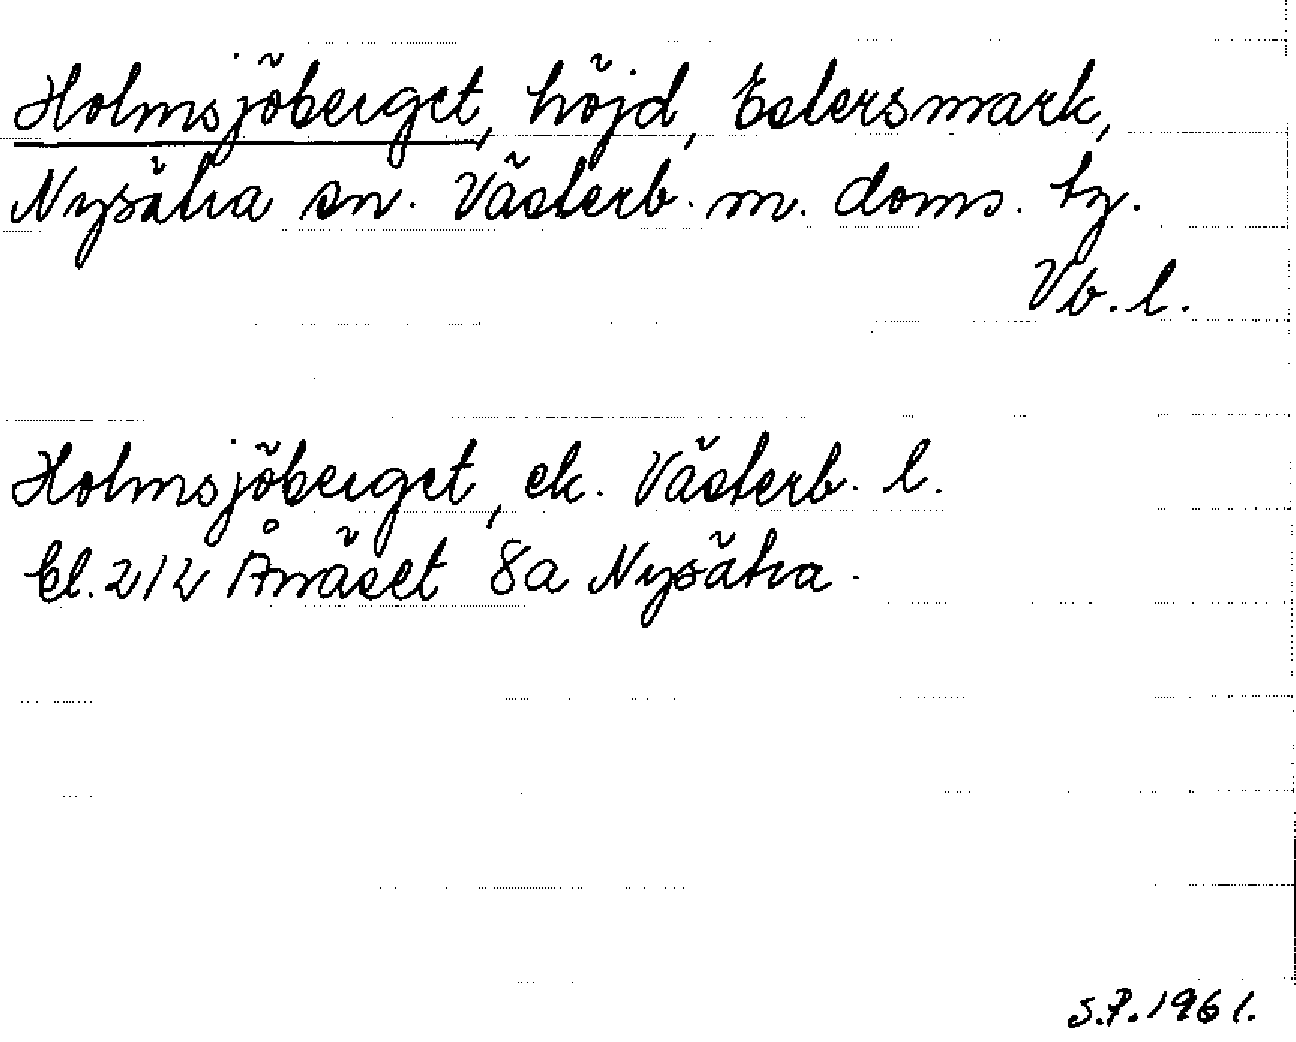 Holmsjöberget, höjd, Estersmark,
Nysätra sn. Västerb. m. doms. tg.
Vb. l.
Holmsjöberget, ek. Västerb. l.
bl. 212 Ånäset 8a Nysätra.
S.P. 1961.